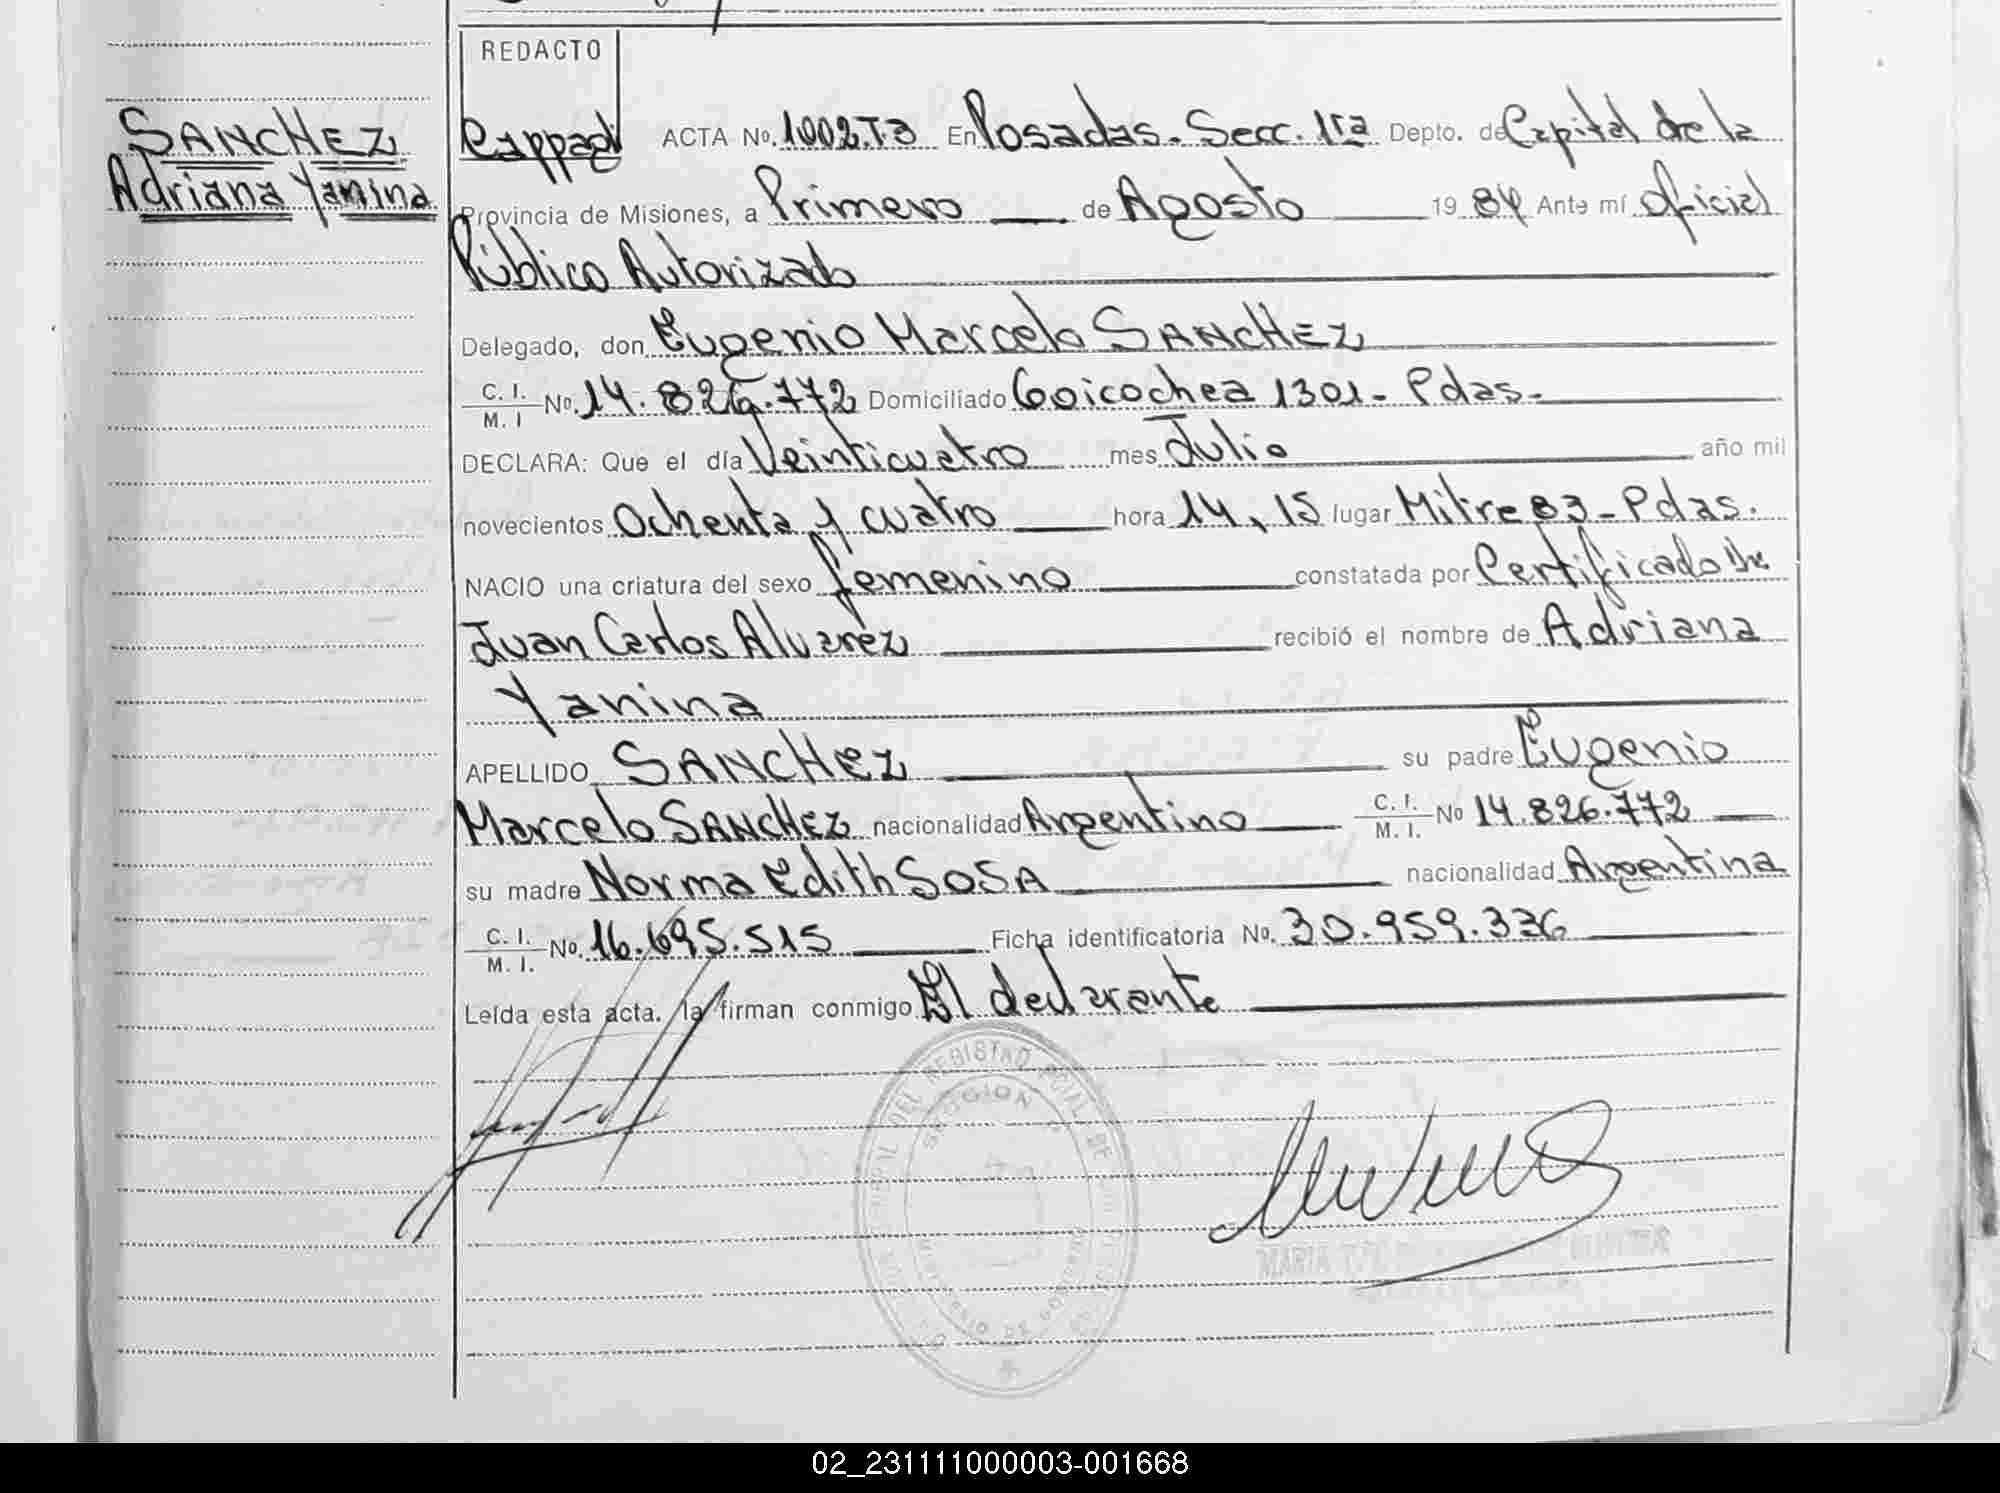 REDACTO
SANCHEZ
Adriana Yanina
ACTA No. 1002.T3 En Posadas. Secc. 1ra Depto. de Capital de la
Provincia de Misiones, a Primero de Agosto 19 84 Ante mí Oficial
Público Autorizado
Delegado, don Eugenio Marcelo SANCHEZ
C. I. M. I No. 14.826.772 Domiciliado Goicochea 1301 - Pdas.
DECLARA: Que el día Veinticuatro mes Julio año mil
novecientos Ochenta y cuatro hora 14,15 lugar Mitre 83 - Pdas.
NACIO una criatura del sexo femenino constatada por Certificado
Juan Carlos Alvarez recibió el nombre de Adriana
Yanina
APELLIDO SANCHEZ su padre Eugenio
Marcelo SANCHEZ nacionalidad Argentino C. I. M. I. No 14.826.772
su madre Norma Edith SOSA nacionalidad Argentina
C. I. M. I. No. 16.695.515 Ficha identificatoria No. 30.959.336
Leída esta acta, la firman conmigo El declarante
DEL REGISTRO
SECCION
MARIA
02_231111000003-001668